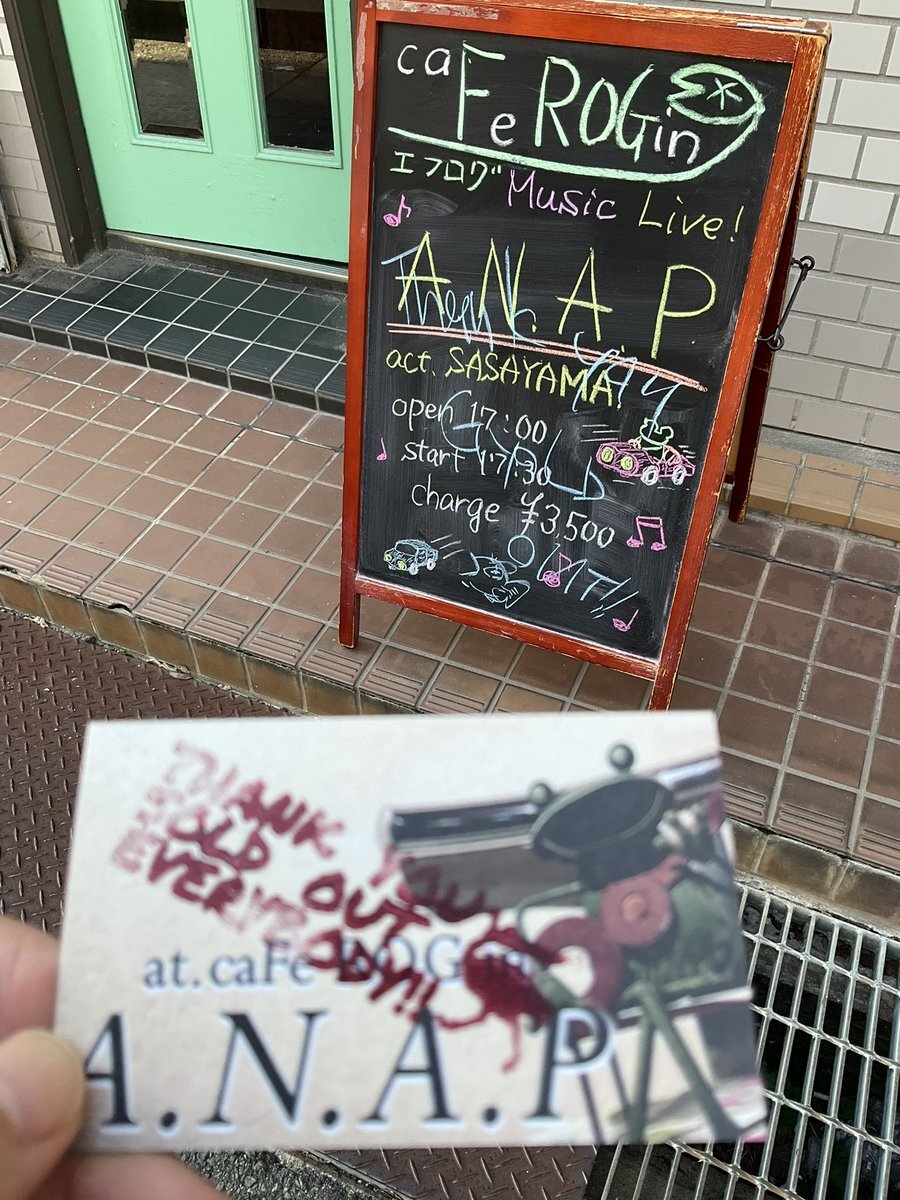 caFe ROGin
エフログ Music Live!
A.N.A.P
Thank you
SOLD OUT!!
act. SASAYAMA!
open 17:00
start 17:30
charge ¥3,500
THANK YOU
SOLD OUT
EVERYBODY!!
at.caFe ROG in
A.N.A.P